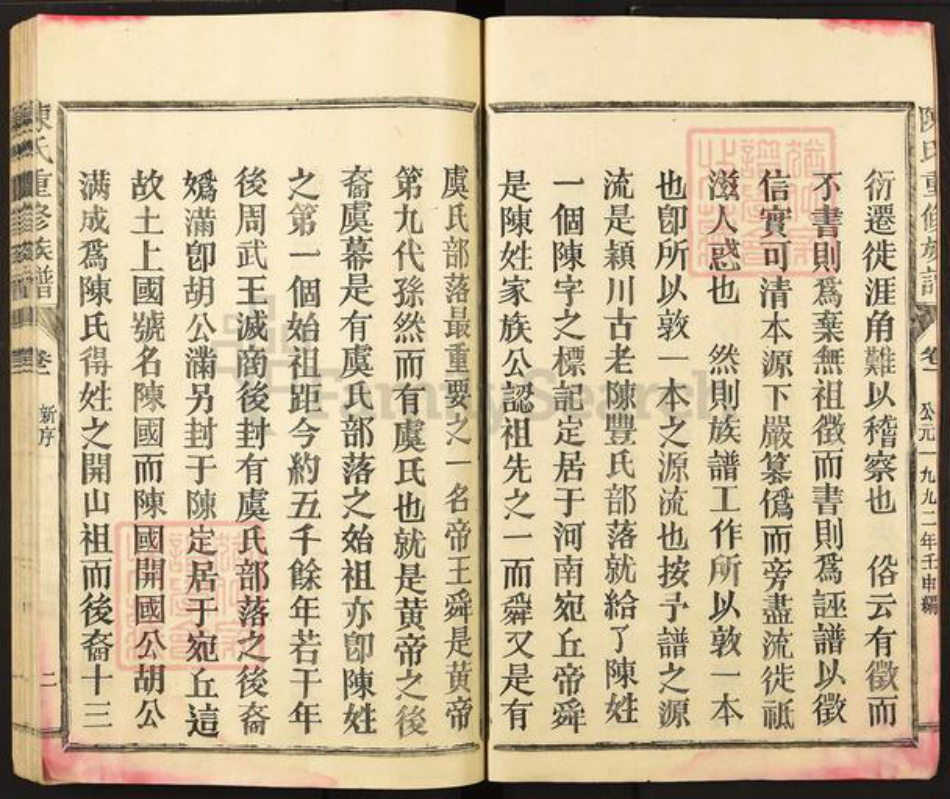 陳氏重修族譜 卷一 公元一九九二年壬申編
衍遷徙涯角難以稽察也 俗云有徵而
不書則爲棄無祖徵而書則爲誣譜以徵
信實可清本源下嚴篡僞而旁盡流徙祗
滋人惑也 然則族譜工作所以敦一本
也卽所以敦一本之源流也按予譜之源
流是穎川古老陳豐氏部落就給了陳姓
一個陳字之標記定居于河南宛丘帝舜
是陳姓家族公認祖先之一而舜又是有
虞氏部落最重要之一名帝王舜是黄帝
第九代孫然而有虞氏也就是黄帝之後
裔虞幕是有虞氏部落之始祖亦卽陳姓
之第一個始祖距今約五千餘年若干年
後周武王滅商後封有虞氏部落之後裔
嬀滿卽胡公滿另封于陳定居于宛丘這
故土上國號名陳國而陳國開國公胡公
满成爲陳氏得姓之開山祖而後裔十三
陳氏重修族譜 卷一 新序 二
FamilySearch